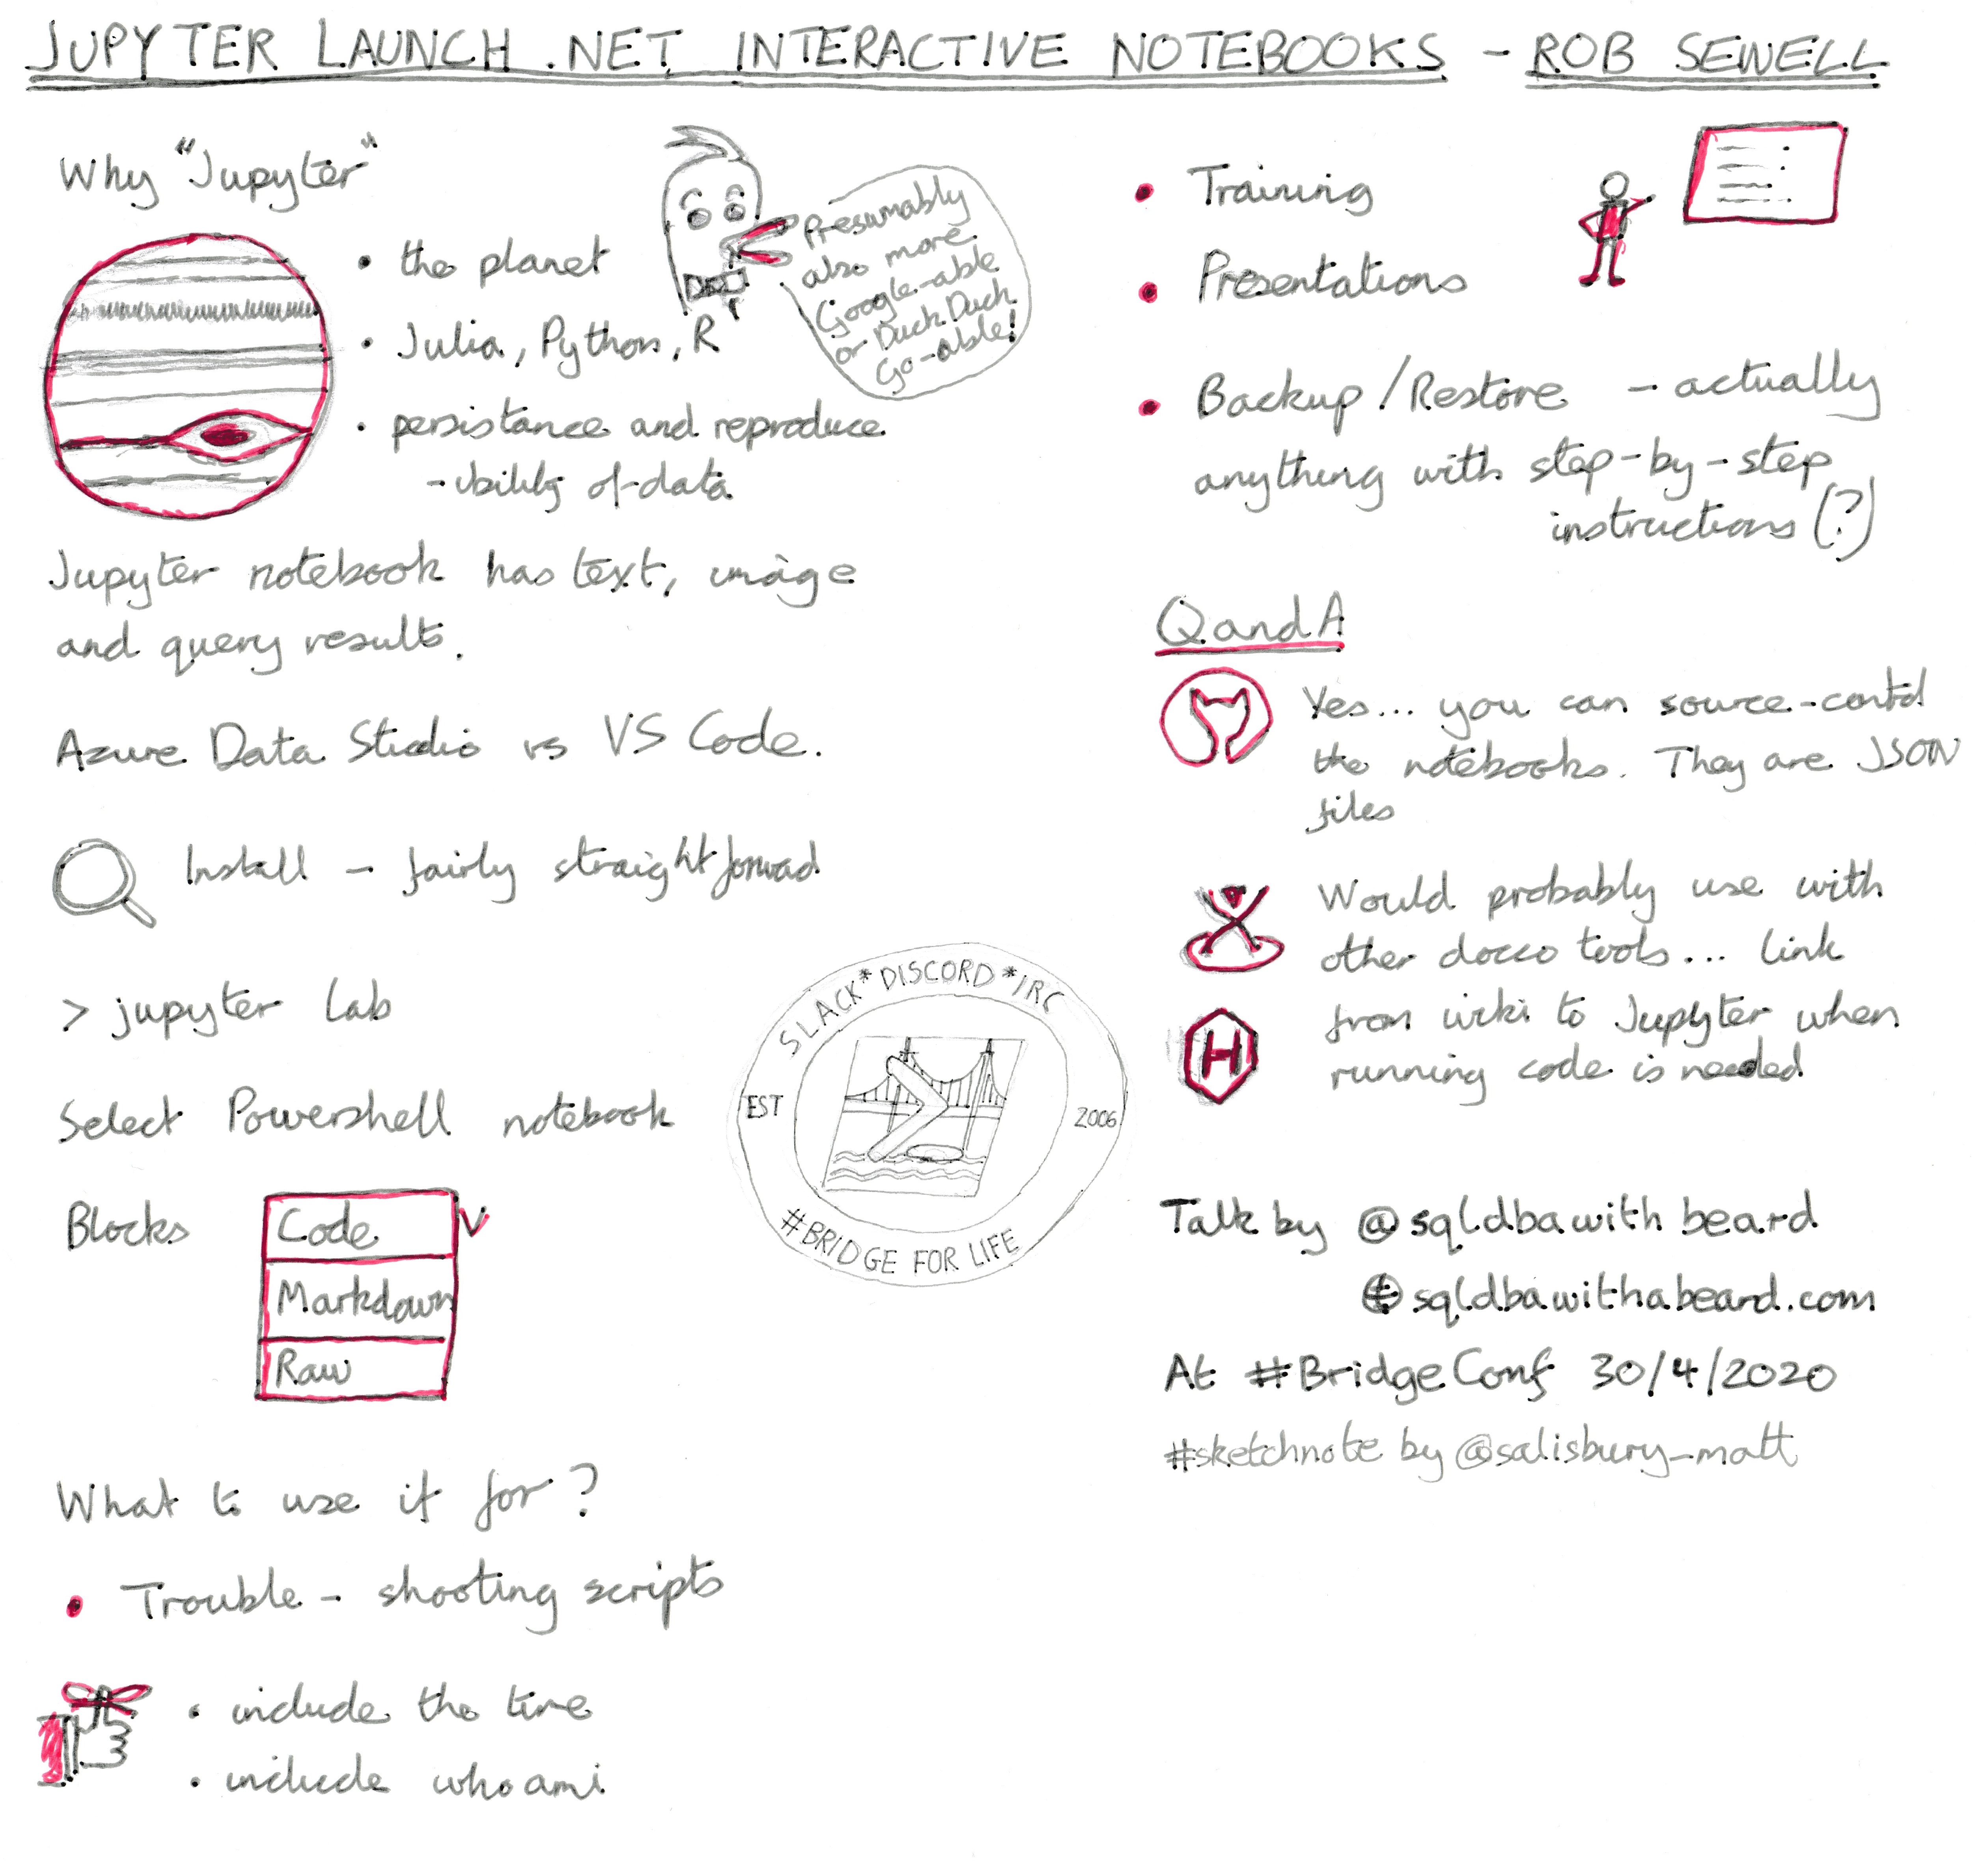 JUPYTER LAUNCH .NET INTERACTIVE NOTEBOOKS - ROB SEWELL
Why "Jupyter"
• the planet
• Julia, Python, R
• persistance and reproduce
-ibility of data
Presumably
also more
Google-able
or Duck Duck
Go-able!
Jupyter notebook has text, image
and query results.
Azure Data Studio vs VS Code.
Install - fairly straight forward
> jupyter lab
Select Powershell notebook
Blocks
Code V
Markdown
Raw
SLACK*DISCORD*IRC
EST
2006
#BRIDGE FOR LIFE
What to use it for?
• Trouble-shooting scripts
• include the time
• include whoami
• Training
• Presentations
• Backup/Restore - actually
anything with step-by-step
instructions (?)
Q and A
Yes... you can source-control
the notebooks. They are JSON
files
Would probably use with
other docco tools... link
from wiki to Jupyter when
H
running code is needed
Talk by @sqldbawithbeard
sqldbawithabeard.com
At #BridgeConf 30/4/2020
#sketchnote by @salisbury_matt